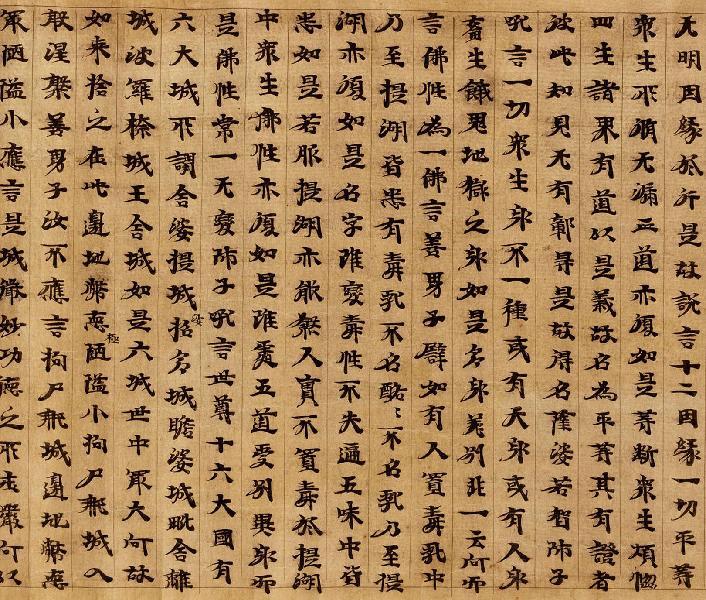 无明因緣於行是故說言十二因緣一切平等
衆生所須无漏正道亦復如是等斷衆生煩惱
四生諸界有道以是義故名為平等其有證者
彼此知見无有鄣㝵是故得名薩婆若智師子
吼言一切衆生身不一種或有天身或有人身
畜生餓鬼地獄之身如是多身差別非一云何而
言佛性為一佛言善男子譬如有人置毒乳中
乃至提湖皆悉有毒乳不名酪〻不名乳乃至提
湖亦復如是名字雖變毒性不失遍五味中皆
悉如是若服提湖亦能煞人實不置毒於提湖
中衆生佛性亦復如是雖處五道受別異身而
是佛性常一无變師子吼言世尊十六大國有
六大城所謂舍婆提城枳多城瞻婆城毗舍離
城波羅㮈城王舍城如是六城世中冣大何故
如來捨之在此邊地弊惡極陋隘小拘尸那城入
般涅槃善男子汝不應言拘尸那城邊地弊惡
冣陋隘小應言是城微妙功德之所庄嚴何以